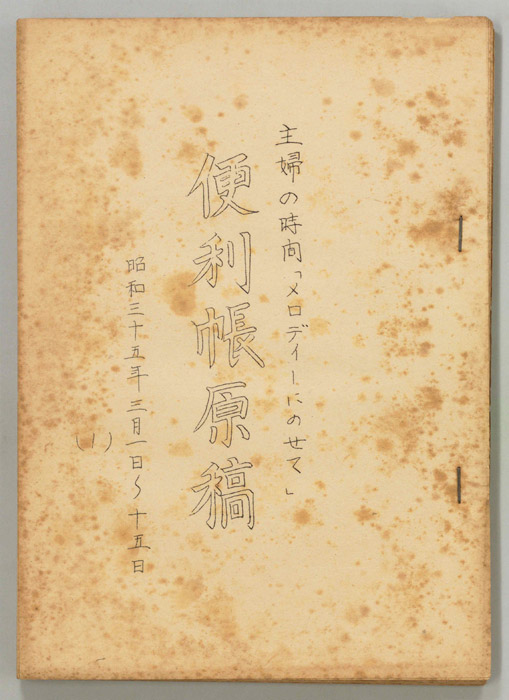 主婦の時間「メロディーにのせて」
便利帳原稿
昭和三十五年 三月一日〜十五日
(1)